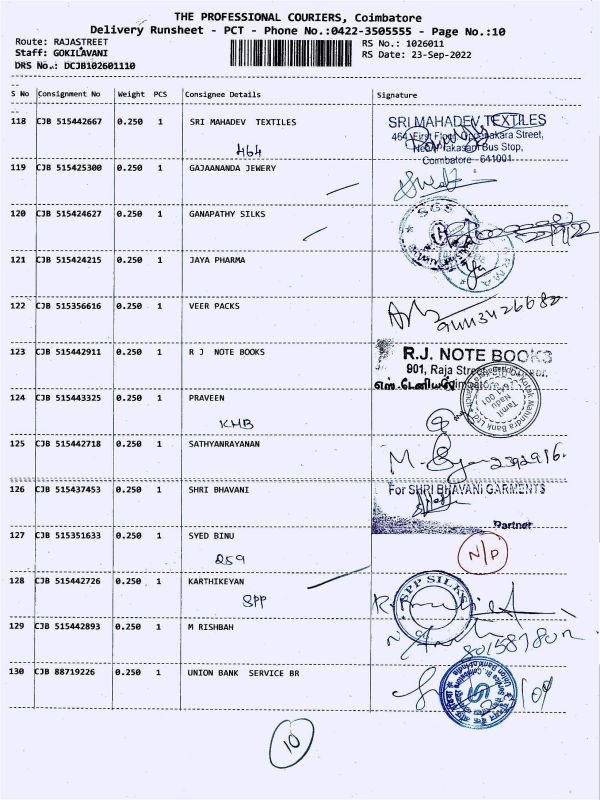 THE PROFESSIONAL COURIERS, Coimbatore
Delivery Runsheet - PCT - Phone No.:0422-3505555 - Page No.:10
Route: RAJASTREET
Staff: GOKILAVANI
DRS No.: DCJB102601110
RS No.: 1026011
RS Date: 23-Sep-2022
S No Consignment No Weight PCS Consignee Details Signature
118 CJB 515442667 0.250 1 SRI MAHADEV TEXTILES
464
SRI MAHADEV TEXTILES
464, First Floor, Oppanakara Street,
Bus Stop,
Coimbatore - 641001
119 CJB 515425300 0.250 1 GAJAANANDA JEWERY
120 CJB 515424627 0.250 1 GANAPATHY SILKS
SGS
121 CJB 515424215 0.250 1 JAYA PHARMA
122 CJB 515356616 0.250 1 VEER PACKS
123 CJB 515442911 0.250 1 R J NOTE BOOKS
R.J. NOTE BOOKS
901, Raja Street
124 CJB 515443325 0.250 1 PRAVEEN
KMB
Kotak Mahindra Bank Ltd
Tamil
Nadu
125 CJB 515442718 0.250 1 SATHYANRAYANAN
2392916.
126 CJB 515437453 0.250 1 SHRI BHAVANI
For SHRI BHAVANI GARMENTS
Partner
127 CJB 515351633 0.250 1 SYED BINU
259
N/P
128 CJB 515442726 0.250 1 KARTHIKEYAN
SPP
SPP SILKS
129 CJB 515442893 0.250 1 M RISHBAH
130 CJB 88719226 0.250 1 UNION BANK SERVICE BR
10